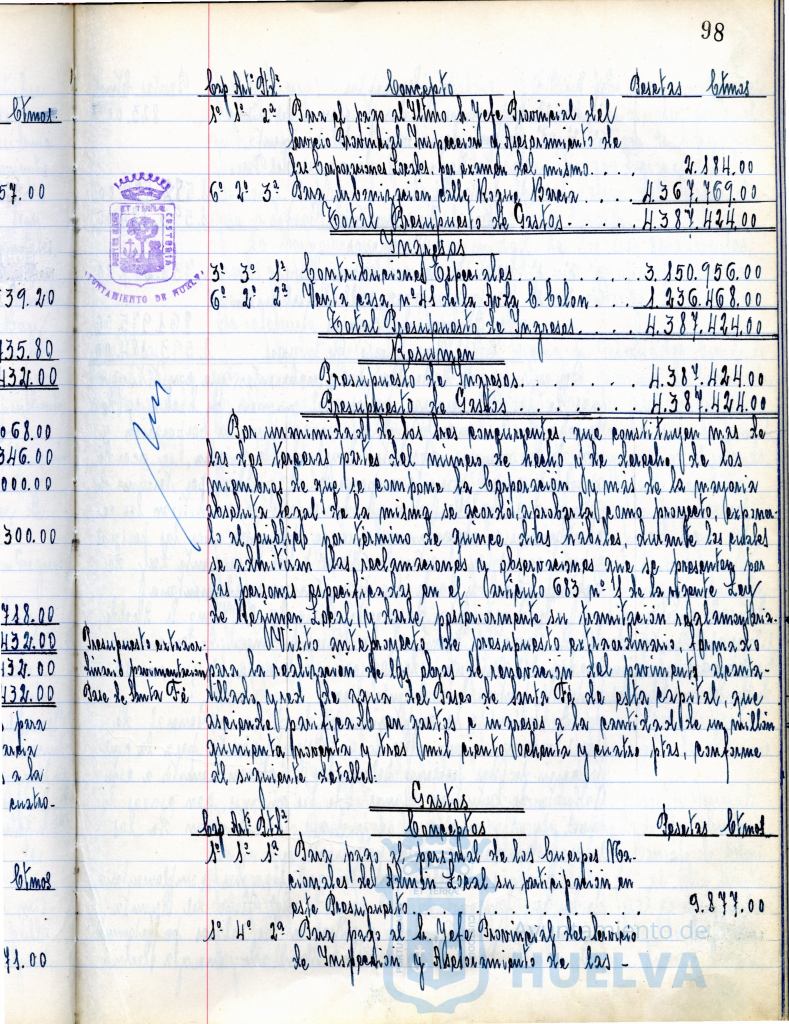 98
Cap Artº Ptdª Concepto Pesetas Ctmos
1º 1º 2ª Para el pago al Iltmo. Sr. Jefe Provincial del
Servicio Provincial Inspección y Asesoramiento de
las Corporaciones Locales, por examen del mismo.... 2.184.00
6º 2º 3ª Para urbanización calle Roque Barcia..... 4.367.769.00
Total Presupuesto de Gastos.... 4.387.424.00
Ingresos
3º 3º 1ª Contribuciones Especiales....... 3.150.956.00
6º 2º 2ª Venta casa, nº 41 de la Avda C. Colon.... 1.236.468.00
Total Presupuesto de Ingresos..... 4.387.424.00
Resumen
Presupuesto de Ingresos....... 4.387.424.00
Presupuesto de Gastos....... 4.387.424.00
Por unanimidad de los Sres concurrentes, que constituyen mas de
las dos terceras partes del numero de hecho y de derecho, de los
miembros de que se compone la Corporación y mas de la mayoria
absoluta legal de la misma se acordó, aprobarla como proyecto, exponer-
lo al publico por termino de quince dias habiles, durante los cuales
se admitiran las reclamaciones y observaciones que se presenten por
las personas especificadas en el Articulo 683 nº 1 de la vigente Ley
de Regimen Local y darle posteriormente su tramitación reglamentaria.
Presupuesto extraor-
dinario pavimentación
Paseo de Santa Fé
Visto anteproyecto de presupuesto extraordinario, formado
para la realización de las obras de renovación del pavimento, alcanta-
rillado y red de agua del Paseo de Santa Fé de esta capital, que
asciende, partificado en gastos e ingresos a la cantidad de un millón
quinienta noventa y tres mil ciento ochenta y cuatro ptas, conforme
al siguiente detalle:
Gastos
Cap Artº Ptdª Conceptos Pesetas Ctmos
1º 1º 1ª Para pago al personal de los Cuerpos Na-
cionales del Admón Local su participación en
este Presupuesto.............. 9.877.00
1º 4º 2ª Para pago al Sr. Jefe Provincial del Servicio
de Inspección y Asesoramiento de las -
Ctmos.
57.00
39.20
735.80
432.00
068.00
346.00
000.00
300.00
718.00
432.00
432.00
432.00
, para
, a la
cuatro-
Ctmos
71.00
AYUNTAMIENTO DE HUELVA
Ayuntamiento de
HUELVA